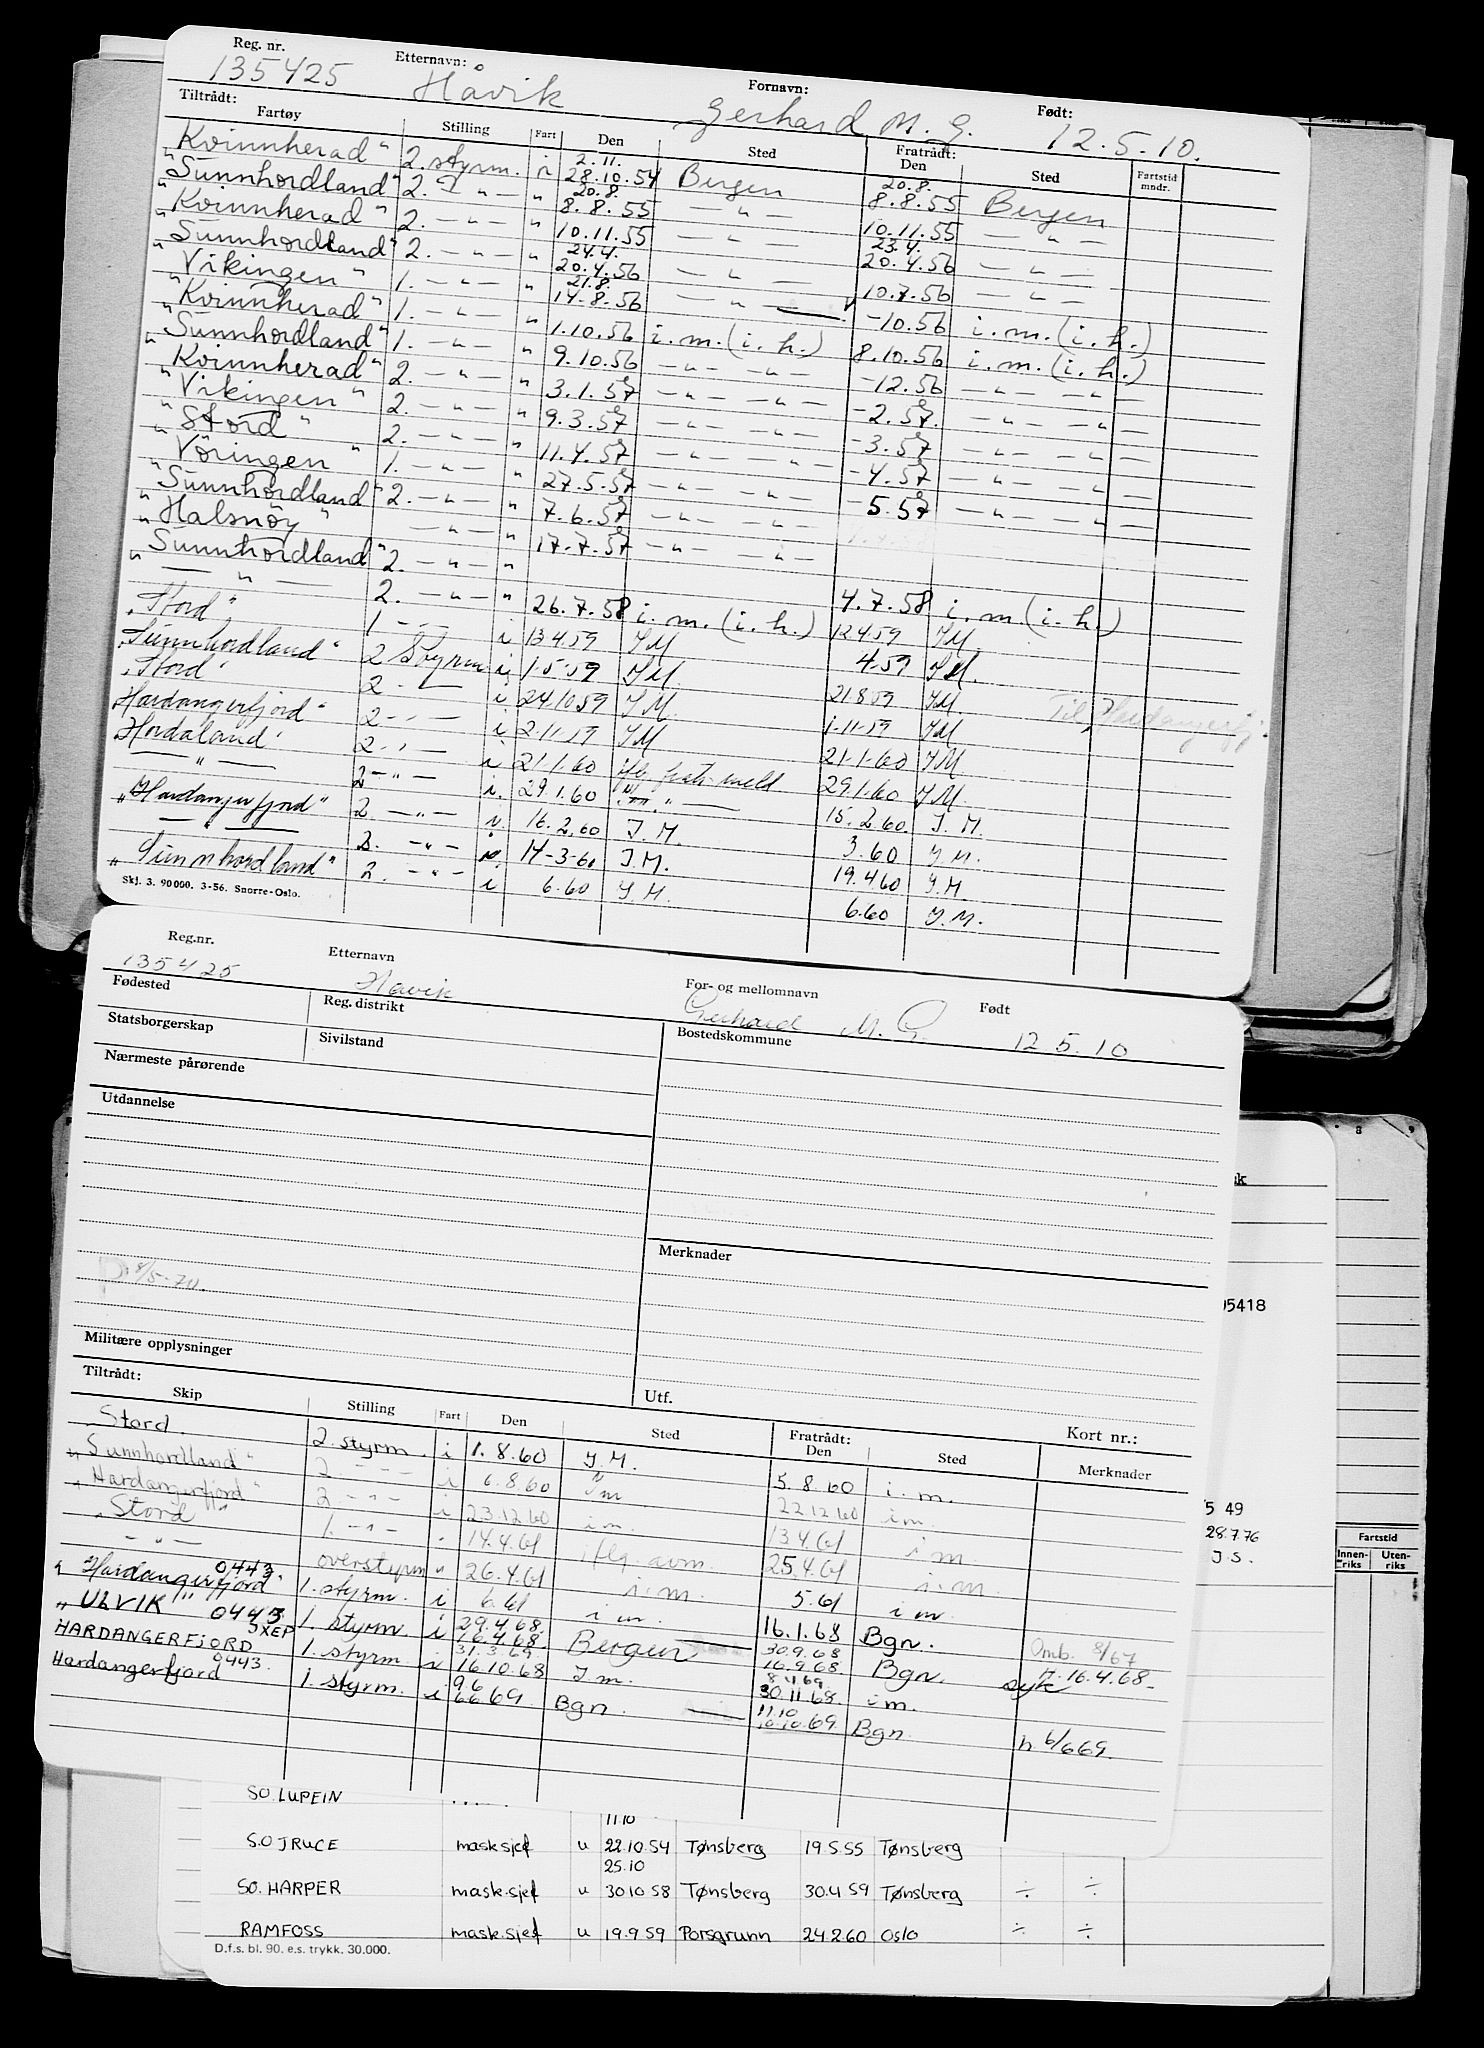 Reg. nr. Etternavn: Fornavn: Født:
135425 Håvik Gerhard M. G. 12.5.10.
Tiltrådt: Fratrådt:
Fartøy Stilling Fart Den Sted Den Sted Fartstid mndr.
2.11. 20.8.
"Kvinnherad" 2. styrm. i 28.10.54 Bergen 8.8.55 Bergen
20.8.
"Sunnhordland" 2. — " — " 8.8.55 — " — 10.11.55 — " —
23.4.
"Kvinnherad" 2. — " — " 10.11.55 — " — 20.4.56 — " —
24.4.
"Sunnhordland" 2. — " — " 20.4.56 — " — 10.7.56 — " —
21.8.
"Vikingen" 1. — " — " 14.8.56 — " — -10.56 i.m. (i.h.)
"Kvinnherad" 1. — " — " 1.10.56 i.m. (i.h.) 8.10.56 i.m. (i.h.)
"Sunnhordland" 1. — " — " 9.10.56 — " — " — -12.56 — " — " —
"Kvinnherad" 2. — " — " 3.1.57 — " — " — -2.57 — " — " —
"Vikingen" 2. — " — " 9.3.57 — " — " — -3.57 — " — " —
"Stord" 2. — " — " 11.4.57 — " — " — -4.57 — " — " —
"Vöringen" 1. — " — " 27.5.57 — " — " — -5.57 — " — " —
"Sunnhordland" 2. — " — " 7.6.57 — " — " —
"Halsnöy" — " — " 17.7.57 — " — " —
"Sunnhordland" 2. — " — " 4.7.58 i.m. (i.h.)
— " — 2. — " — " 26.7.58 i.m. (i.h.) 12459 IM
"Stord" 1 — " — i 13459 IM 4.59 IM.
"Sunnhordland" 2 Styrm i 1.5.59 IM. 21859 IM. Til Hardangerfj.
"Stord" 2 — " — i 24.10.59 IM. 1.11.59 IM
Hardangerfjord" 2 — " — i 2.11.59 IM 21.1.60 IM
Hordaland" 2 — " — i 21.1.60 iflg fratr. meld 29.1.60 IM.
— " — 2 — " — i. 29.1.60 — " — 15.2.60 I. M.
"Hardangerfjord" 2. — " — i. 16.2.60 I. M. 3.60 I. M.
— " — 2. — " — i. 14-3-60 I. M. 19.460 I. M
"Sunnhordland" 2. — " — i 6.60 I. M. 6.60 I. M.
Skj. 3. 90000. 3-56. Snorre-Oslo.
Reg.nr. Etternavn For- og mellomnavn Født
135425 Håvik Gerhard M. G. 12.5.10
Fødested Reg. distrikt Bostedskommune
Statsborgerskap Sivilstand
Nærmeste pårørende
Utdannelse
Merknader
8/5-70.
Militære opplysninger
Utf.
Tiltrådt: Fratrådt: Kort nr.:
Skip Stilling Fart Den Sted Den Sted Merknader
"Stord. 2. styrm. i 1.8.60 I.M. 5.8.60 i.m.
"Sunnhordland" 2 — " — i 6.8.60 Im 22.12.60 im
"Hardangerfjord" 2 — " — i 23.12.60 im. 13.4.61 im
"Stord" 1. — " — " 14.4.61 iflg. avm. 25.4.61 i.m.
— " — overstyrm " 26.4.61 i.m. 5.61 im
0443.
"Hardangerfjord 1. styrm. i 6.61 im. 16.1.68 Bgn. Omb. 8/67
29.4.68. 30.9.68
"ULVIK" 0443 JXEP 1. styrm. i 16.4.68. Bergen 16.9.68 Bgn. syk 17.16.4.68-
31.3.69 8.4.69
HARDANGERFJORD 0443. 1. styrm. i 16.10.68 I m. 30.11.68. im
9.6 11.10
Hardangerfjord 1. styrm. i 6.6.69 Bgn. 10.10.69 Bgn. n 6/669.
95418
5 49
28.7.76
J.S.
Fartstid
Innen-riks Uten-riks
8 9
SO. LUPEIN
11.10
S.O JRUCE mask.sjef u 22.10.54 Tønsberg 19.5.55 Tønsberg
25.10
SO. HARPER mask.sjef u 30.10 58 Tønsberg 30.4 59 Tønsberg ÷ ÷
RAMFOSS mask.sjef u 19.9 59 Porsgrunn 24.2.60 Oslo ÷ ÷
D.f.s. bl. 90. e.s. trykk. 30.000.